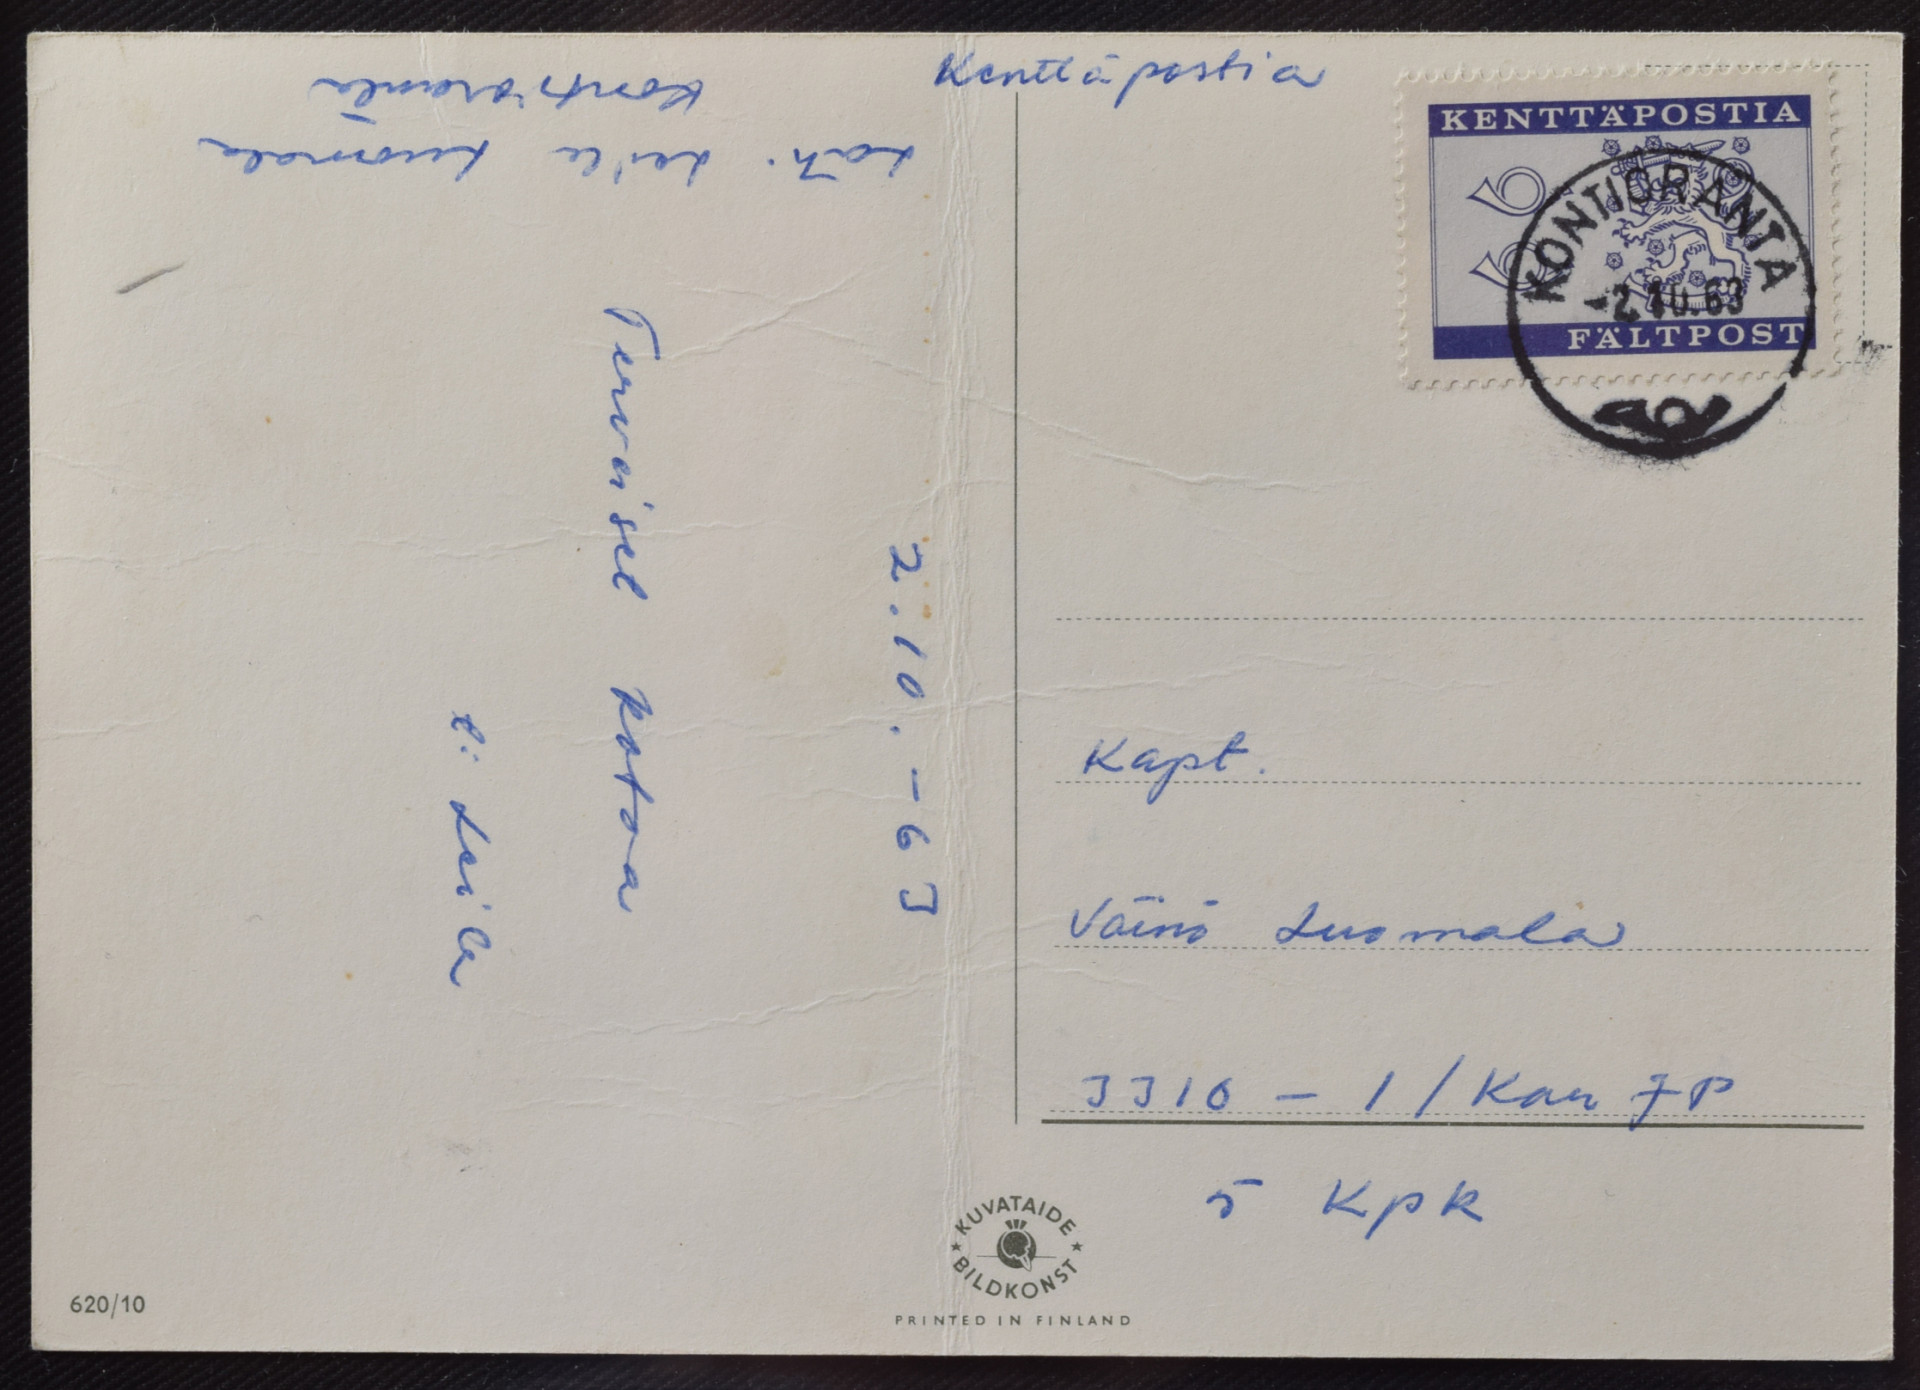 Kenttäpostia
KENTTÄPOSTIA
FÄLTPOST
KONTIORANTA
-2.10.63
Läh. Leila Luomala
Kontioranta
2.10.-63
Terveiset kotoa
t: Leila
Kapt.
Väinö Luomala
3310 - 1/Kan JP
5 Kpk
KUVATAIDE
BILDKONST
PRINTED IN FINLAND
620/10